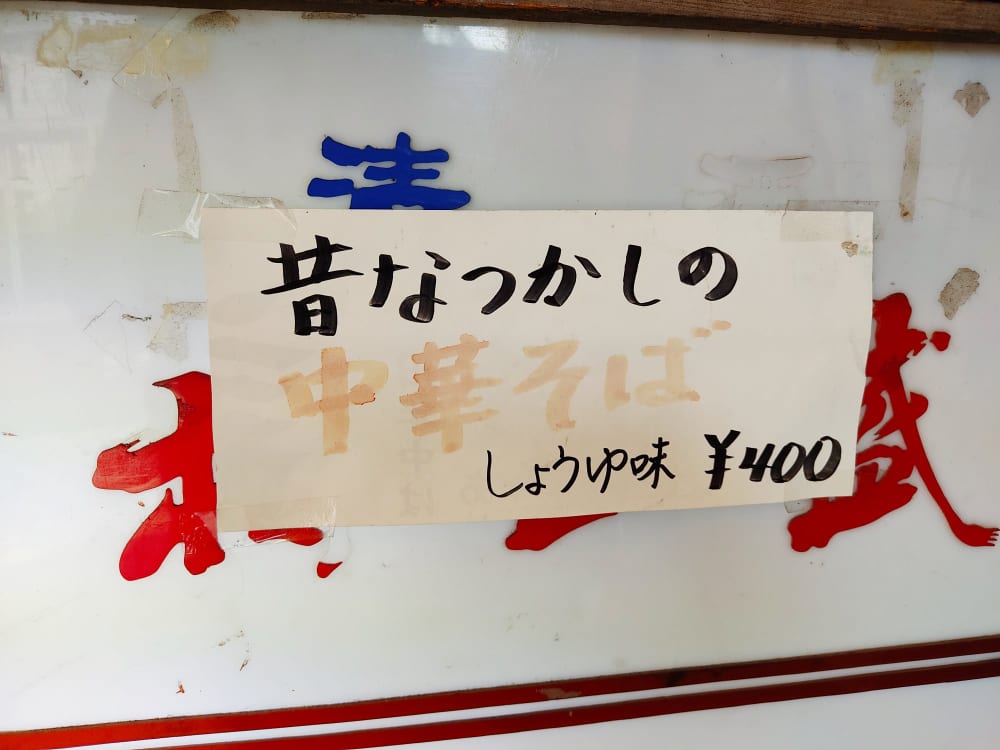 昔なつかしの
中華そば
しょうゆ味 ¥400